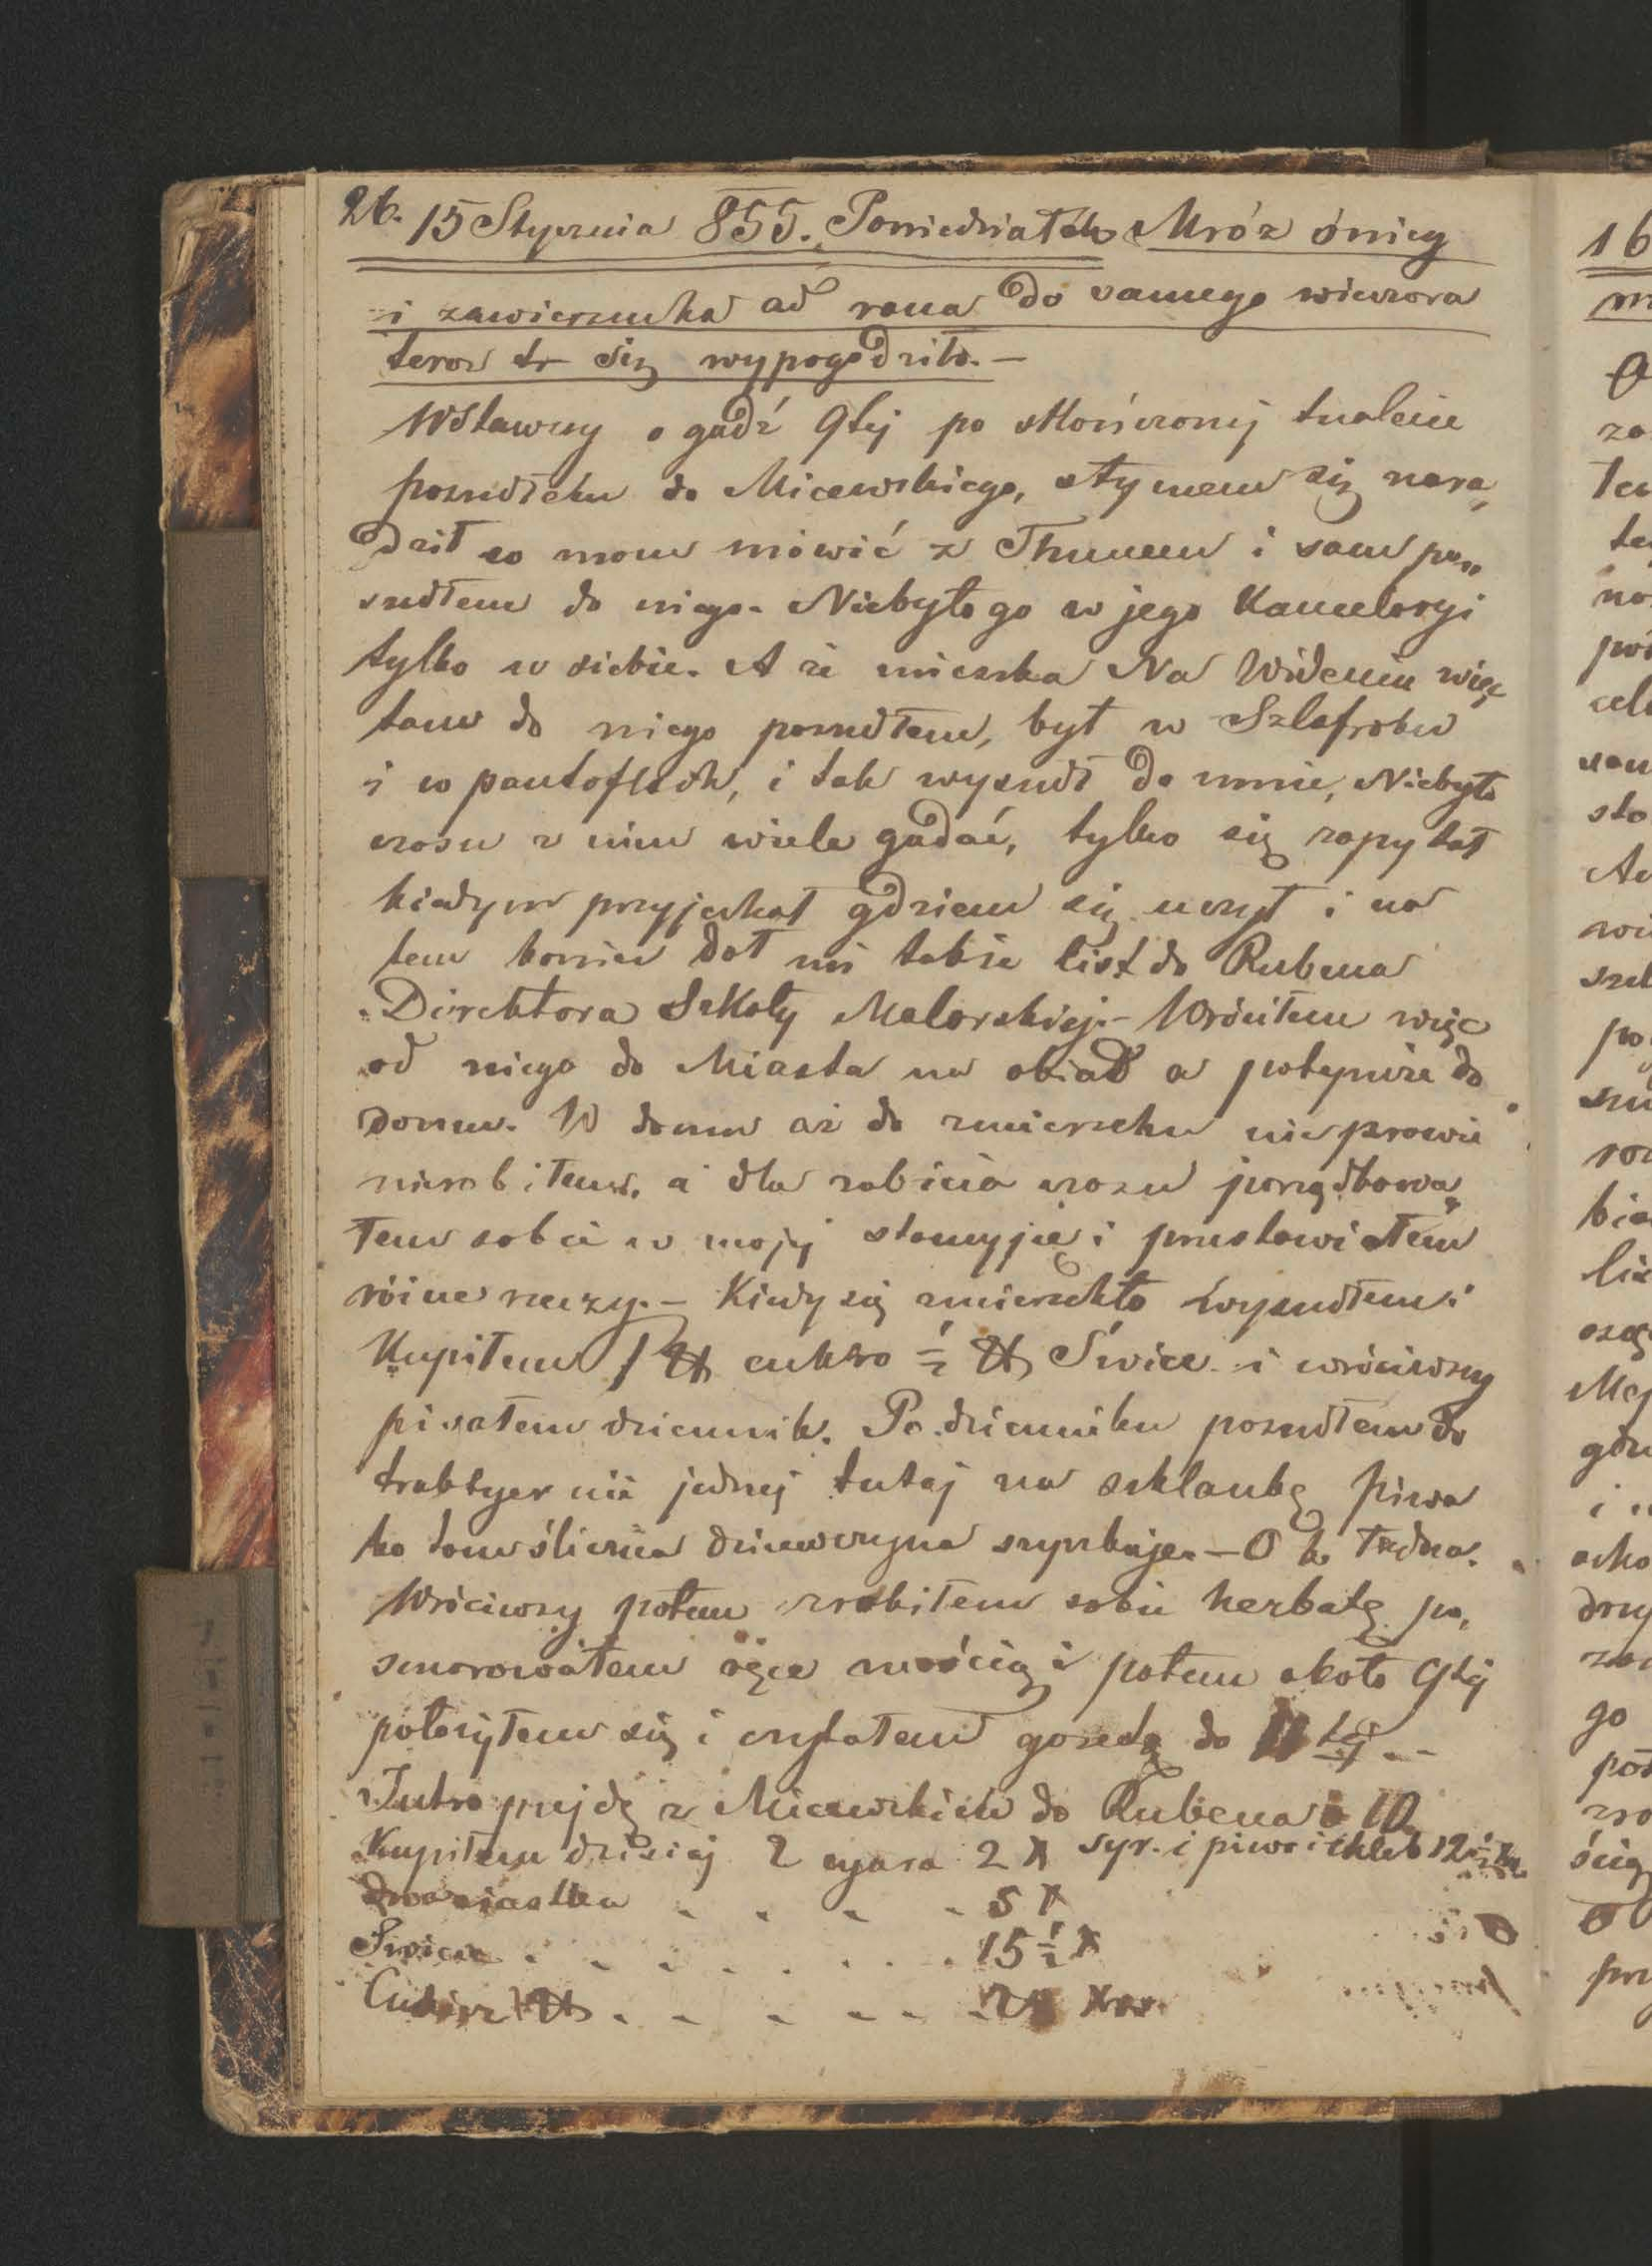 26. 15 Stycznia 855. Poniedziałek Mróz śnieg
i zawierucha od rana do samego wieczora
teraz się wypogodziło. —
Wstawszy o godź 9tej po skończonej tualecie
poszedłem do Micewskiego, z tym em się nara„
dził co mam mówić z Thunem i sam po„
szedłem do niego. Niebyło go w jego Kancelaryi
tylko w siebie. A że mieszka Na Wideniu więc
tam do niego poszedłem, był w Szlafroku
i w pantoflach, i tak wyszedł do mnie, Niebyło
czasu z nim wiele gadać, tylko się zapytał
kiedym przyjechał gdziem się uczył i na
tem koniec dał mi także list do Rubena
Direktora Szkoły Malarskiej. – Wróciłem więc
od niego do Miasta na obiad a potym że do
domu. W domu aż do zmierzchu nic prawie
nierobiłem. a dla zabicia czasu porządkowa„
łem sobie w mojej stancyjce i przestawiałem
różne rzeczy. – Kiedy się zmierzchło wyszedłem i
Kupiłem 1 ℔ cukro ½ ℔ Świec i wróciwszy
pisałem dziennik. Po dzienniku poszedłem do
traktyerni jednej tutaj na szklankę piwa
bo tam śliczna dziewczyna szynkuje. – O to ładna.
Wróciwszy potem zrobiłem sobie herbatę po„
smarowałem ręce maścią i potem około 9tej
położyłem się i czytałem gazetę do 11 tej. —
Jutro pujdę z Micewskim do Rubena o 10
Kupiłem dzisiaj 2 cygara 2 x syr. i piwo i chleb 12½ x
Dwa ciastka . . . . 5 x
Świece . . . . . . . . 15½ x
Cukier 1 ℔ . . . . . . xr.